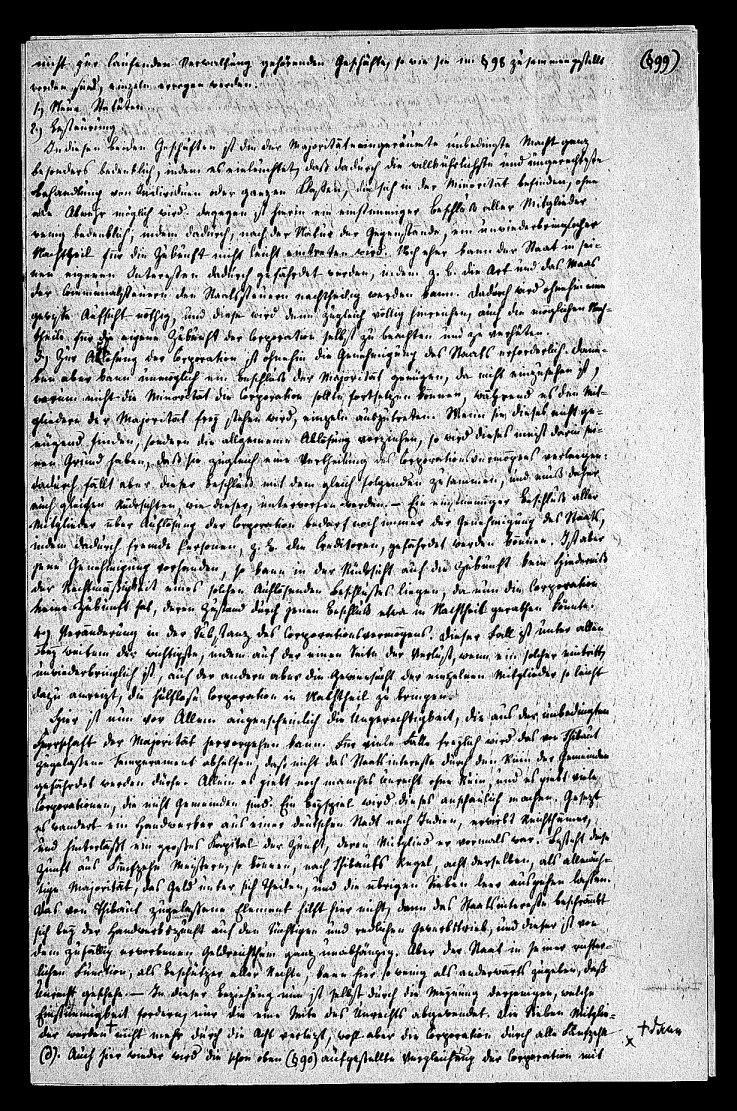 nicht zur laufenden Verwaltung gehörenden Geschäfte, so wie sie im § 98 zusammengestellt
worden sind, einzeln erwogen werden.
(§99)
1) Neue Statuten.
2) Besteurung.
In diesen beiden Geschäften ist die der Majorität eingeräumte unbedingte Macht ganz
besonders bedenklich, indem es einleuchtet, daß dadurch die willkührlichste und ungerechteste
Behandlung von Individuen oder ganzen Klassen, die sich in der Minorität befinden, ohne
alle Abwehr möglich wird. Dagegen ist hierin ein einstimmiger Beschluß aller Mitglieder
wenig bedenklich, indem dadurch, nach der Natur der Gegenstände, ein unwiederbringlicher
Nachtheil für die Zukunft nicht leicht eintreten wird. Noch eher kann der Staat in sei-
nen eigenen Interessen dadurch gefährdet werden, indem z. B. die Art und das Maas
der Communalsteuern den Staatssteuern nachtheilig werden kann. Dadurch wird ohnehin eine
gewisse Aufsicht nöthig, und diese wird dann zugleich völlig hinreichen, auch die möglichen Nach-
theile für die eigene Zukunft der Corporation selbst zu beachten und zu verhüten.
3) Zur Auflösung der Corporation ist ohnehin die Genehmigung des Staats erforderlich. Dane-
ben aber kann unmöglich ein Beschluß der Majorität genügen, da nicht einzusehen ist,
warum nicht die Minorität die Corporation sollte fortsetzen können, während es den Mit-
gliedern der Majorität frey stehen wird, einzeln auszutreten. Wenn sie dieses nicht ge-
nügend finden, sondern die allgemeine Auflösung vorziehen, so wird dieses meist darin sei-
nen Grund haben, daß sie zugleich eine Vertheilung des Corporationsvermögens verlangen:
dadurch fällt aber dieser Beschluß mit dem gleich folgenden zusammen, und muß daher
auch gleichen Rücksichten, wie dieser, unterworfen werden. – Ein einstimmiger Beschluß aller
Mitglieder über Auflösung der Corporation bedarf noch immer die Genehmigung des Staats,
indem dadurch fremde Personen, z. B. die Creditoren, gefährdet werden können. Ist aber
jene Genehmigung vorhanden, so kann in der Rücksicht auf die Zukunft kein Hinderniß
der Rechtmäßigkeit eines solchen Auflösenden Beschlusses liegen, da nun die Corporation
keine Zukunft hat, deren Zustand durch jenen Beschluß etwa in Nachtheil gerathen könnte.
4) Veränderung in der Substanz des Corporationsvermögens. Dieser Fall ist unter allen
bey weitem der wichtigste, indem auf der einen Seite der Verlust, wenn ein solcher eintritt,
unwiederbringlich ist, auf der andern aber die Gewinnsucht der einzelnen Mitglieder so leicht
dazu anreizt, die hülflose Corporation in Nachtheil zu bringen.
Hier ist nun vor Allem augenscheinlich die Ungerechtigkeit, die aus der unbedingten
Herrschaft der Majorität hervorgehen kann. Für viele Fälle freylich wird das von Thibaut
zugelassene Temperament abhelfen, daß nicht das Staatsinteresse durch den Ruin der Gemeinden
gefährdet werden dürfe. Allein es giebt noch manches Unrecht ohne Ruin, und es giebt viele
Corporationen, die nicht Gemeinden sind. Ein Beyspiel wird dieses anschaulich machen. Gesetzt
es wandert ein Handwerker aus einer deutschen Stadt nach Indien, erwirbt Reichthümer,
und hinterläßt ein großes Kapital der Zunft, deren Mitglied er vormals war. Besteht diese
Zunft aus Funfzehn Meistern, so können, nach Thibauts Regel, acht derselben, als allmäch-
tige Majorität, das Geld unter sich theilen, und die übrigen Sieben leer ausgehen lassen.
Das von Thibaut zugelassene Element hilft hier nicht, denn das Staatsinteresse beschränkt
sich bey der Handwerkszunft auf den tüchtigen und redlichen Gewerbbetrieb, und dieser ist von
dem zufällig erworbenen Geldreichthum ganz unabhängig. Aber der Staat in seiner richter-
lichen Function, als Beschützer aller Rechte, kann hier so wenig als anderwärts zugeben, daß
Unrecht geschehe. – In dieser Beziehung nun ist selbst durch die Meynung derjenigen, welche
Einstimmigkeit fordern, nur die eine Seite des Unrechts abgewendet. Die Sieben Mitglie-
der werden + nicht mehr durch die Acht verletzt, wohl aber die Corporation durch alle Funfzehn
+ dann
x
(d). Auch hier wieder wird die schon oben (§90) aufgestellte Vergleichung der Corporation mit